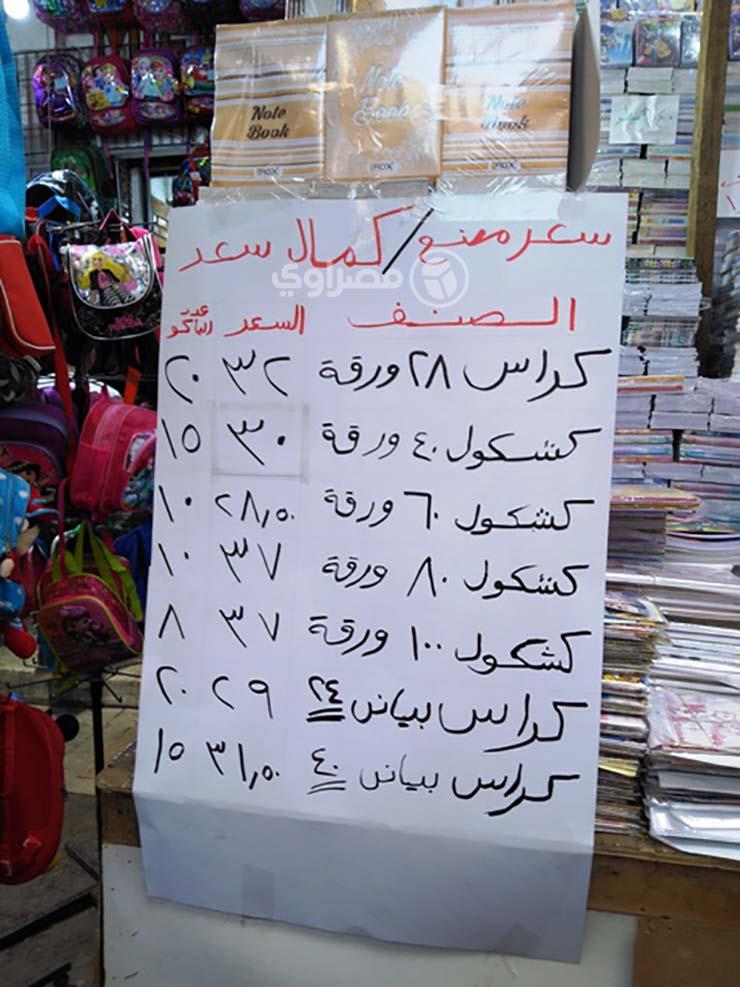 Note Book
Note Book
Note Book
سعر مصنع / كمال سعد
مصراوي
الصنف السعر عدد الباكو
كراس ٢٨ ورقة ٣٢ ٢٠
كشكول ٤٠ ورقة ٣٠ ١٥
كشكول ٦٠ ورقة ٢٨,٥٠ ١٠
كشكول ٨٠ ورقة ٣٧ ١٠
كشكول ١٠٠ ورقة ٣٧ ٨
كراس بياض ٢٤ ٢٩ ٢٠
كراس بياض ٤٠ ٣١,٥٠ ١٥